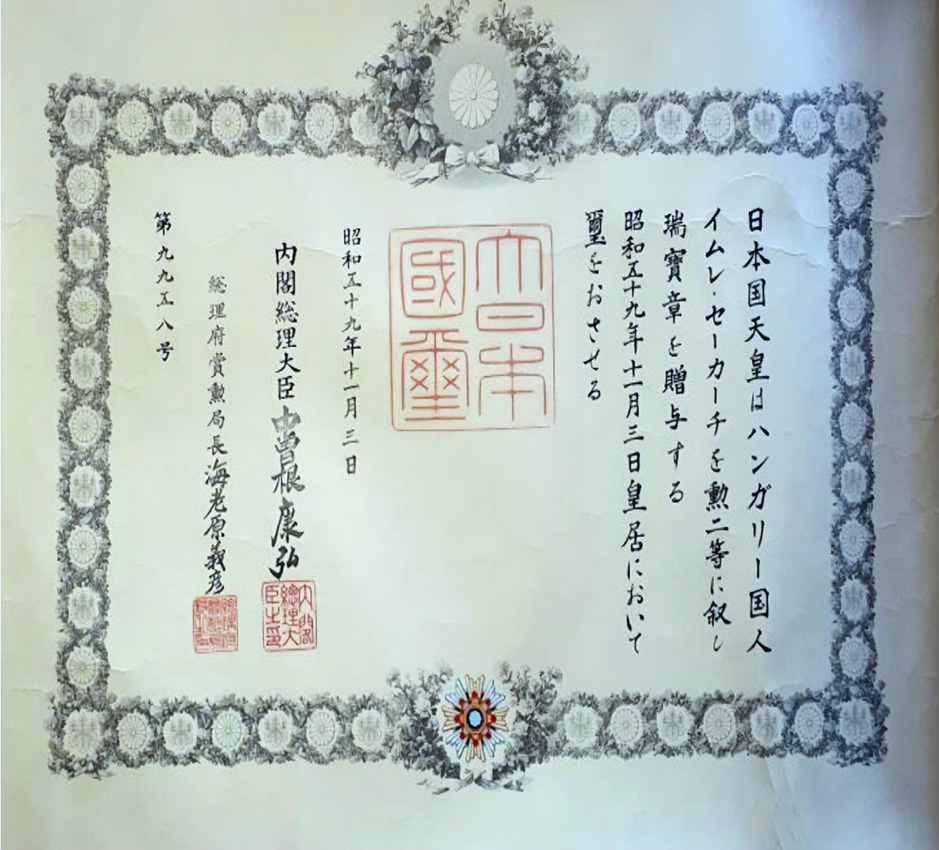 日本国天皇はハンガリー国人
イムレ・セーカーチを勲二等に叙し
瑞寶章を贈与する
昭和五十九年十一月三日皇居において
璽をおさせる
大日本
國璽
昭和五十九年十一月三日
内閣総理大臣 中曽根康弘
内閣
總理大
臣之印
総理府賞勲局長 海老原義彦
第九九五八号